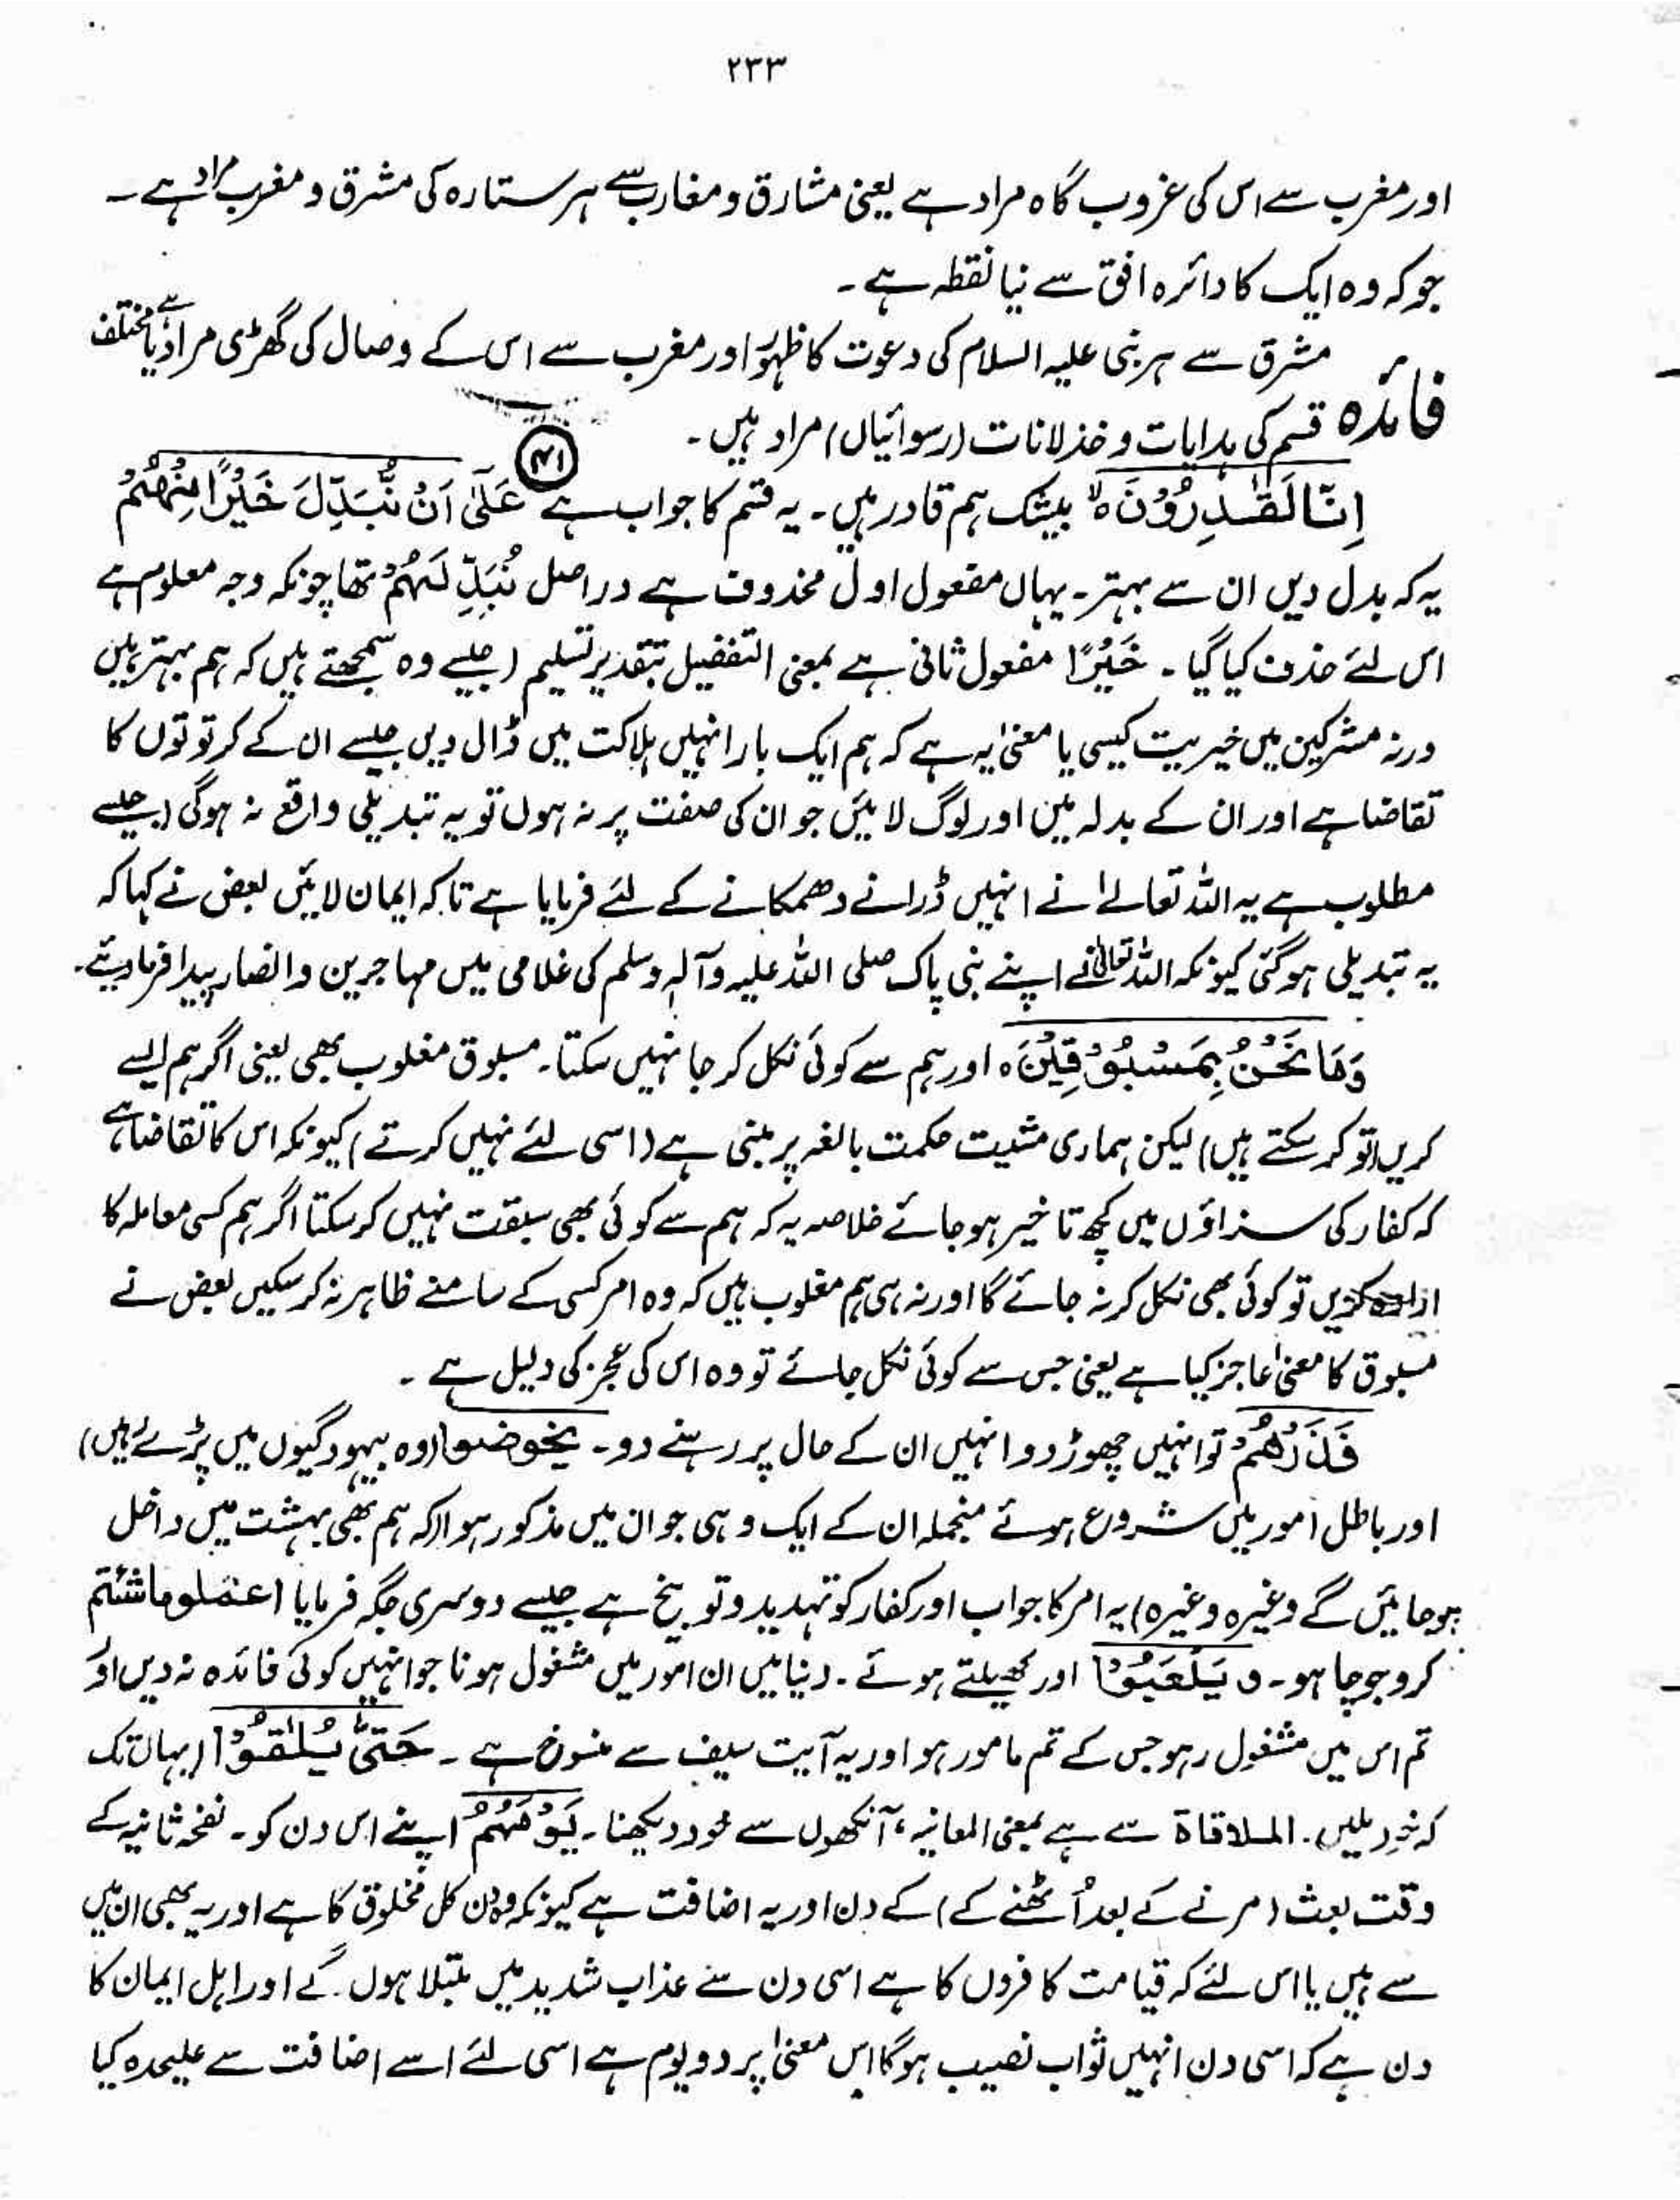 ۲۳۳
اور مغرب سے اس کی غروب گاہ مراد ہے یعنی مشارق و مغارب سے ہر ستارہ کی مشرق و مغرب مراد ہے۔
جو کہ وہ ایک کا دائرہ افق سے نیا نقطہ ہے۔
مشرق سے ہر نبی علیہ السلام کی دعوت کا ظہور اور مغرب سے اس کے وصال کی گھڑی مراد ہے یا مختلف
فائدہ قسم کی ہدایات و خذلانات (رسوائیاں) مراد ہیں۔
۴۱
اِنَّا لَقٰدِرُوْنَ ہ لا بیشک ہم قادر ہیں۔ یہ قسم کا جواب ہے عَلٰٓی اَنْ نُّبَدِّلَ خَیْرًا مِّنْھُمْ
یہ کہ بدل دیں ان سے بہتر۔ یہاں مفعول اول محذوف ہے دراصل نُبَدِّلَھُمْ تھا چونکہ وجہ معلوم ہے
اس لئے حذف کیا گیا۔ خَیْرًا مفعول ثانی ہے بمعنی التفضیل بتقدیر تسلیم (جیسے وہ سمجھتے ہیں کہ ہم بہتر ہیں
ورنہ مشرکین میں خیریت کیسی یا معنیٰ یہ ہے کہ ہم ایک بار انہیں ہلاکت میں ڈال دیں جیسے ان کے کرتوتوں کا
تقاضا ہے اور ان کے بدلہ میں اور لوگ لائیں جو ان کی صفت پر نہ ہوں تو یہ تبدیلی واقع نہ ہوگی (جیسے
مطلوب ہے یہ اللہ تعالےٰ نے انہیں ڈرانے دھمکانے کے لئے فرمایا ہے تاکہ ایمان لائیں بعض نے کہا کہ
یہ تبدیلی ہوگئی کیونکہ اللہ تعالیٰ نے اپنے نبی پاک صلی اللہ علیہ وآلہٖ وسلم کی غلامی میں مہاجرین و انصار پیدا فرما دیئے۔
وَمَا نَحْنُ بِمَسْبُوْقِیْنَ ہ اور ہم سے کوئی نکل کر جا نہیں سکتا۔ مسبوق مغلوب بھی یعنی اگر ہم ایسے
کریں (تو کر سکتے ہیں) لیکن ہماری مشیت حکمت بالغہ پر مبنی ہے (اسی لئے نہیں کرتے) کیونکہ اس کا تقاضا ہے
کہ کفار کی سزاؤں میں کچھ تاخیر ہو جائے خلاصہ یہ کہ ہم سے کوئی بھی سبقت نہیں کر سکتا اگر ہم کسی معاملہ کا
ارادہ کریں تو کوئی بھی نکل کر نہ جائے گا اور نہ ہی ہم مغلوب ہیں کہ وہ امر کسی کے سامنے ظاہر نہ کر سکیں بعض نے
مسبوق کا معنیٰ عاجز کیا ہے یعنی جس سے کوئی نکل جائے تو وہ اس کی عجز کی دلیل ہے۔
فَذَرْھُمْ تو انہیں چھوڑ دو انہیں ان کے حال پر رہنے دو۔ یخوضوا (وہ بیہودگیوں میں پڑے ہیں)
اور باطل امور میں شروع ہوئے منجملہ ان کے ایک وہی جو ان میں مذکور ہوا (کہ ہم بھی بہشت میں داخل
ہو جائیں گے وغیرہ وغیرہ) یہ امر کا جواب اور کفار کو تہدید و توبیخ ہے جیسے دوسری جگہ فرمایا اعملوماشئتم
کرو جو چاہو۔ وَیَلْعَبُوْا اور کھیلتے ہوئے۔ دنیا میں ان امور میں مشغول ہونا جو انہیں کوئی فائدہ نہ دیں اور
تم اس میں مشغول رہو جس کے تم مامور ہو اور یہ آیت سیف سے منسوخ ہے۔ حَتّٰی یُلٰقُوْا (یہاں تک
کہ خود ملیں۔ الملاقاۃ سے ہے بمعنی المعانیہ، آنکھوں سے خود دیکھنا۔ یَوْمَھُمُ اپنے اس دن کو۔ نفخہ ثانیہ کے
وقت بعث (مرنے کے بعد اُٹھنے کے) کے دن اور یہ اضافت ہے کیونکہ وہ دن کل مخلوق کا ہے اور یہ بھی ان میں
سے ہیں یا اس لئے کہ قیامت کافروں کا ہے اسی دن سے عذاب شدید میں مبتلا ہوں گے اور اہل ایمان کا
دن ہے کہ اسی دن انہیں ثواب نصیب ہوگا اس معنیٰ پر دو یوم ہے اسی لئے اسے اضافت سے علیحدہ کیا